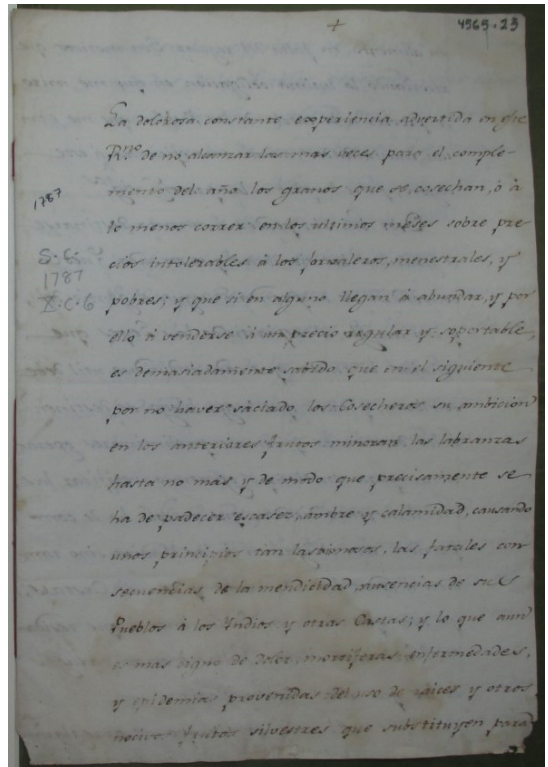 4565-23
La dolorosa constante experiencia advertida en este
Rno. de no alcanzar las mas veces para el comple-
mento del año los granos que se cosechan, ò à
lo menos correr en los ultimos meses sobre pre-
cios intolerables à los jornaleros, menestrales, y
pobres; y que si en alguno llegan à abundar, y por
ello à venderse à un precio regular y soportable,
es demasiadamente sabido que en el siguiente
por no haver saciado los Cosecheros su ambicion
en los anteriores frutos minoran las labranzas
hasta no mas y de modo que precisamente se
ha de padecer escasez, ambre y calamidad, causando
unos principios tan lastimosos, las fatales con
sequencias de la mendicidad, ausencias de sus
Pueblos à los Yndios y otras Castas; y lo que aun
es mas digno de dolor, mortiferas enfermedades,
y epidemias provenidas del uso de raices y otros
nocivos frutos silvestres que substituyen para
1787
S. C.
1787
X-C-6